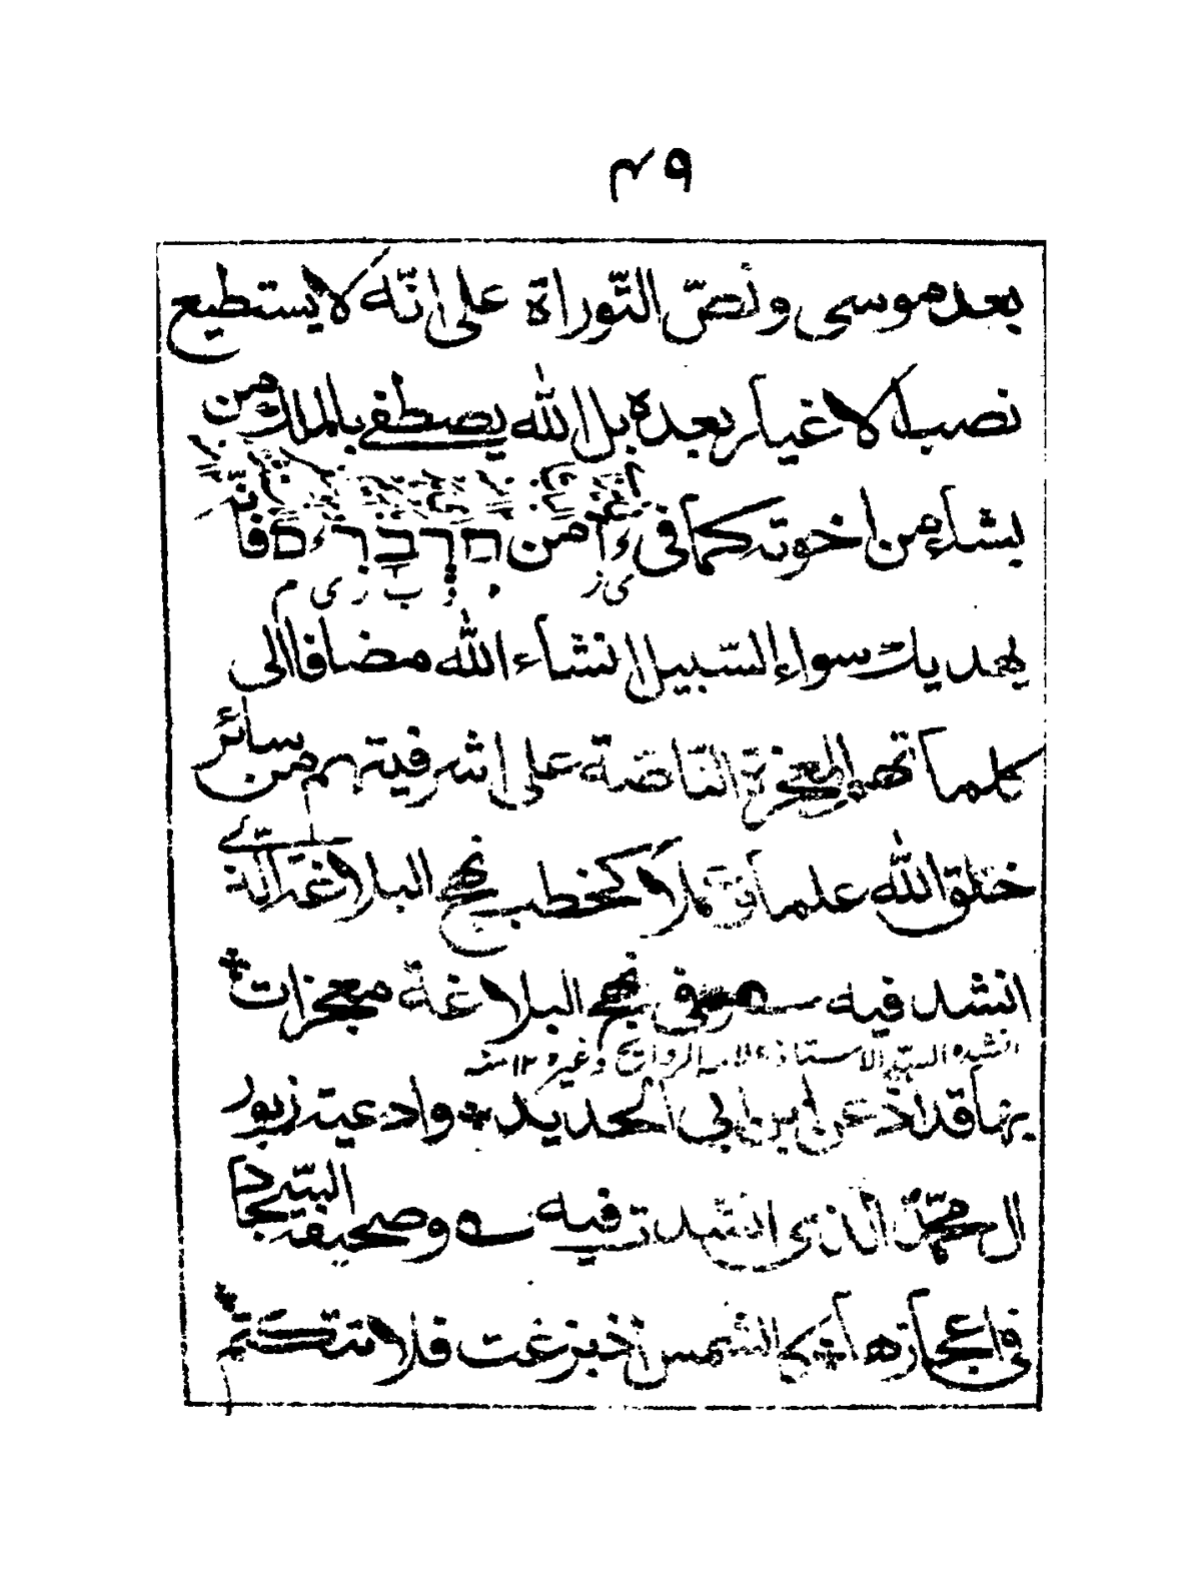 ۴۹
بعد موسى ونصّ التّوراة على انّه لا يستطيع
نصب الاغيار بعده بل الله يصطفى بالملك من
يشاء من اخوته كما فى من فانّه
ى ز ب ز ى م
يهديك سواء السّبيل انشاء الله مضافا الى
كلماتهم المعجزة النّاصّة على اشرفيتهم من سائر
خلق الله علما وعملا كخطب نهج البلاغة الّذى
انشد فيه وفى نهج البلاغة معجزات
انشده السيّد الاستاذ وغيره ١٢ منه
بها قد اذعن ابن ابى الحديد وادعية زبور
ال محمّد الّذى انشدت فيه وصحيفة السّجاد
فى اعجازها كالشمس اذ بزغت فلا تنكتم